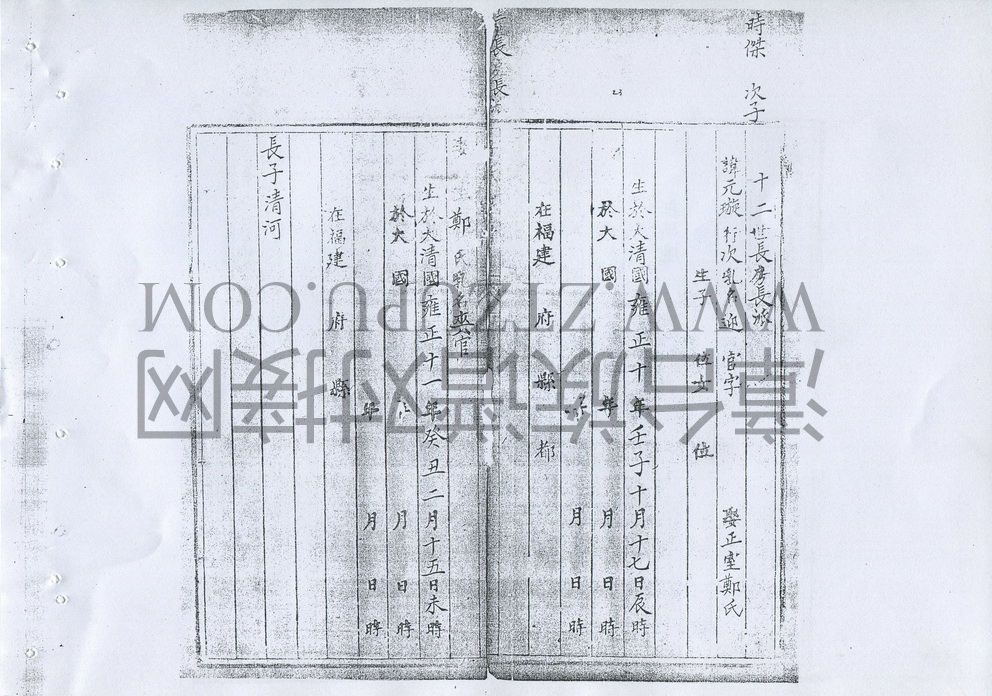 時傑 次子
十二世長房長派
諱元璇 行次 乳名迎 官字 娶正室鄭氏
生子 位女 位
生於大清國雍正十年壬子十月十七日辰時
於大 國 年 月 日 時
月 日 時
在福建 府 縣 都
長 長
鄭氏 名 官
生於大清國雍正十一年癸丑二月十五日未時
於大 國 月 日 時
年 月 日 時
在福建 府 縣
長子清河
漳台族谱对接网
WWW.ZTZUPU.COM